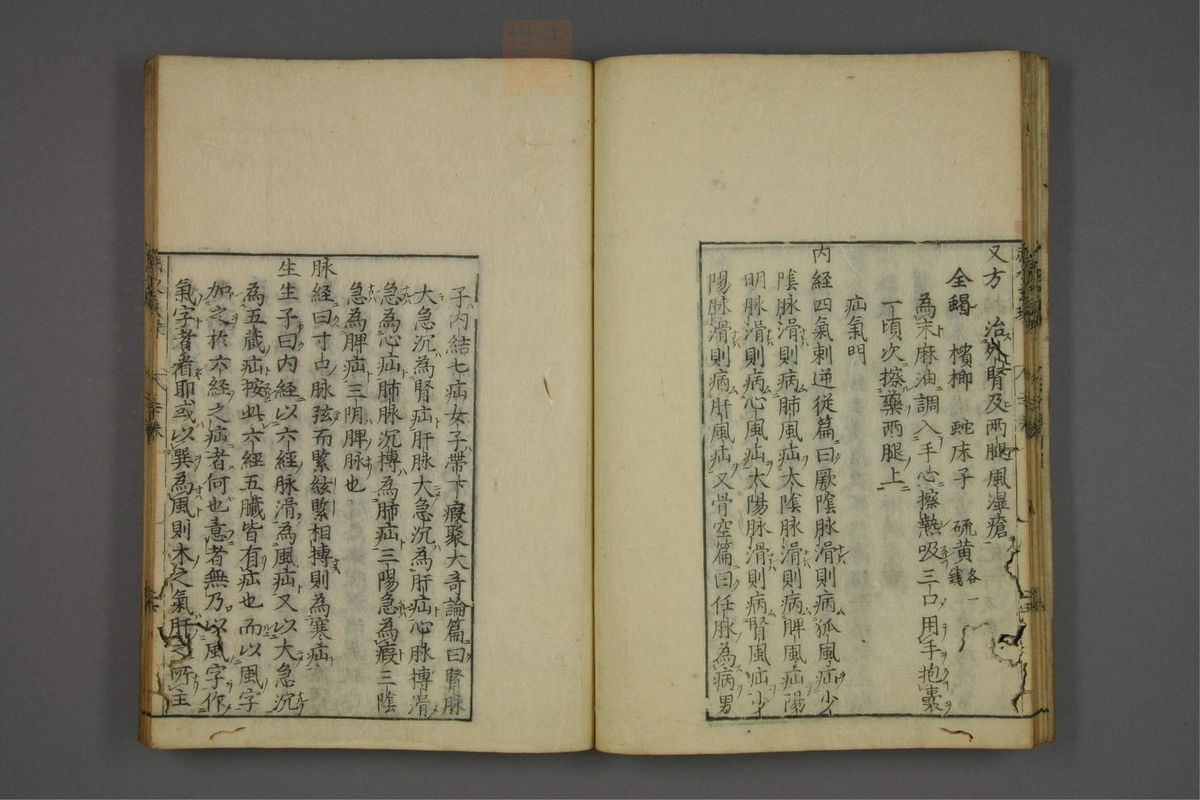 又方　治外腎及兩腿風湿瘡
全蝎　檳榔　蛇床子　硫黄各一錢
為末麻油調入手心擦熱吸三口用手抱囊
一頃次擦藥兩腿上
疝氣門
内経四氣刺逆従篇曰厥陰脉滑則病狐風疝少
陰脉滑則病肺風疝太陰脉滑則病脾風疝陽
明脉滑則病心風疝太陽脉滑則病腎風疝少
陽脉滑則病肝風疝又骨空篇曰任脉為病男
子内結七疝女子帶下瘕聚大奇論篇曰腎脉
大急沉為腎疝肝脉大急沉為肝疝心脉搏滑
急為心疝肺脉沉搏為肺疝三陽急為瘕三陰
急為脾疝三阴脾脉也
脉経曰寸口脉弦而緊弦緊相搏則為寒疝
生生子曰内経以六経脉滑為風疝又以大急沉
為五蔵疝按此六経五臓皆有疝也而以風字
加之於六経之疝者何也意者無乃以風字作
氣字者看耶或以巽為風則木之氣肝之所主